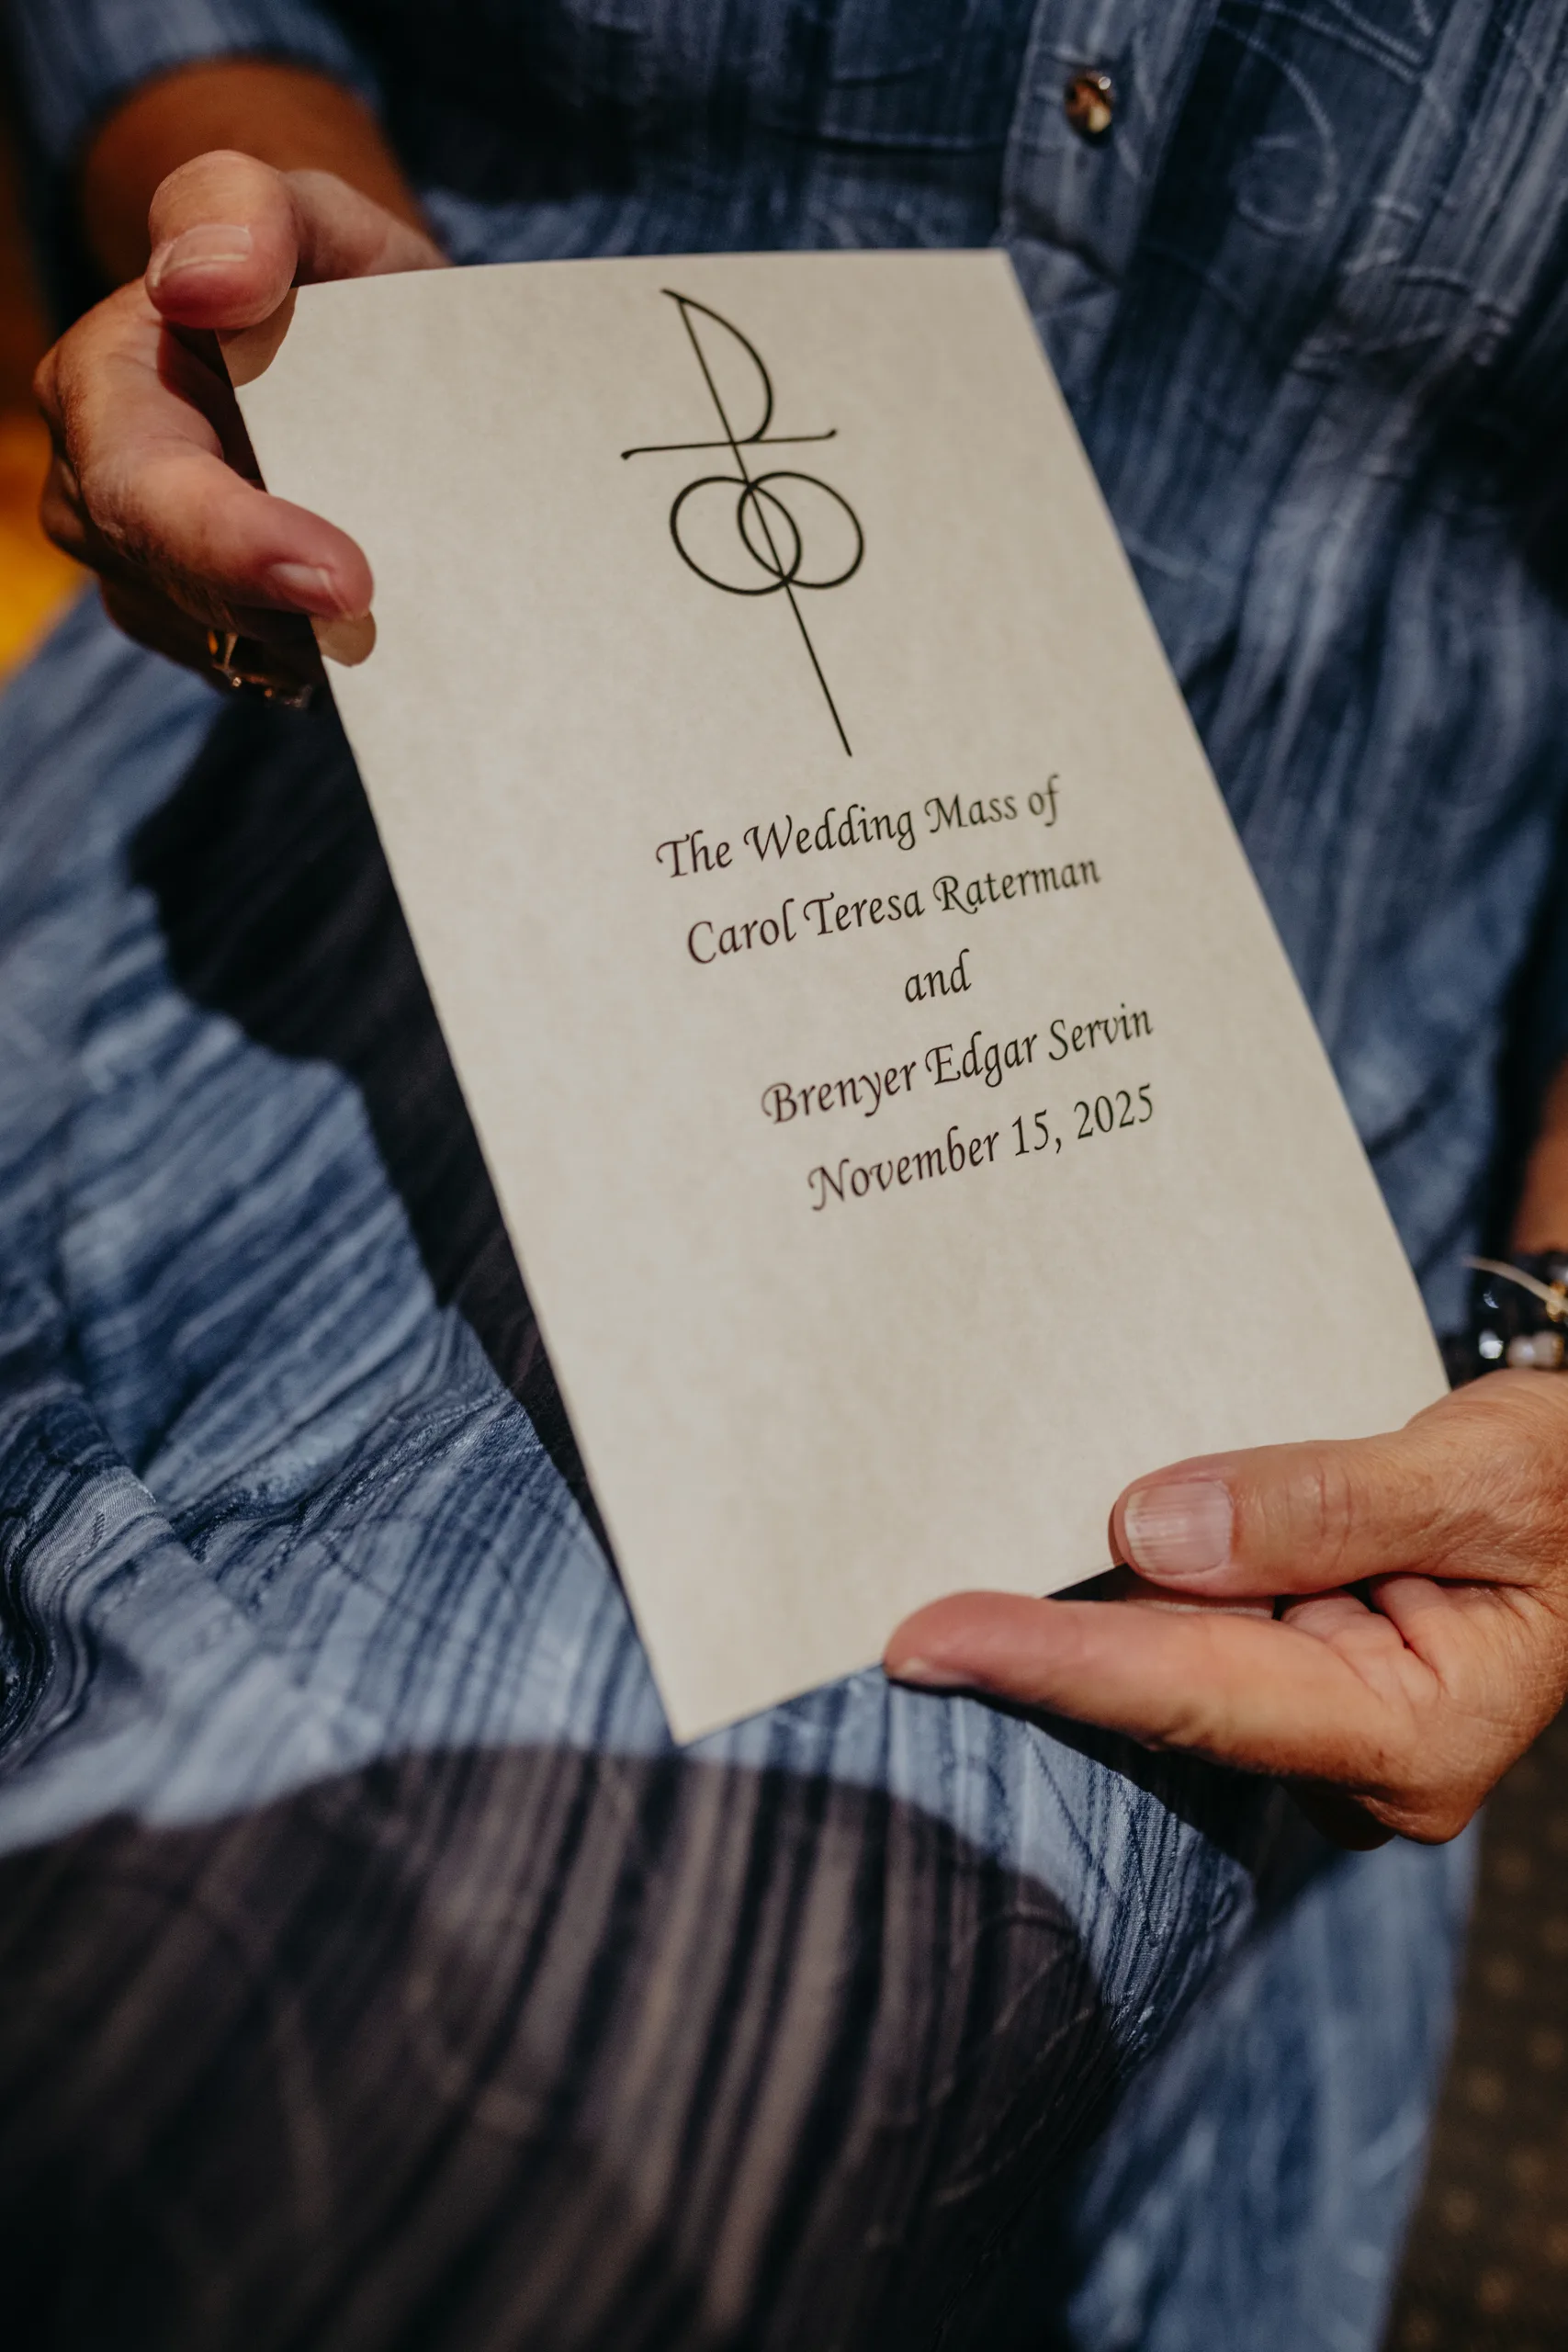 The Wedding Mass of
Carol Teresa Raterman
and
Brenyer Edgar Servin
November 15, 2025